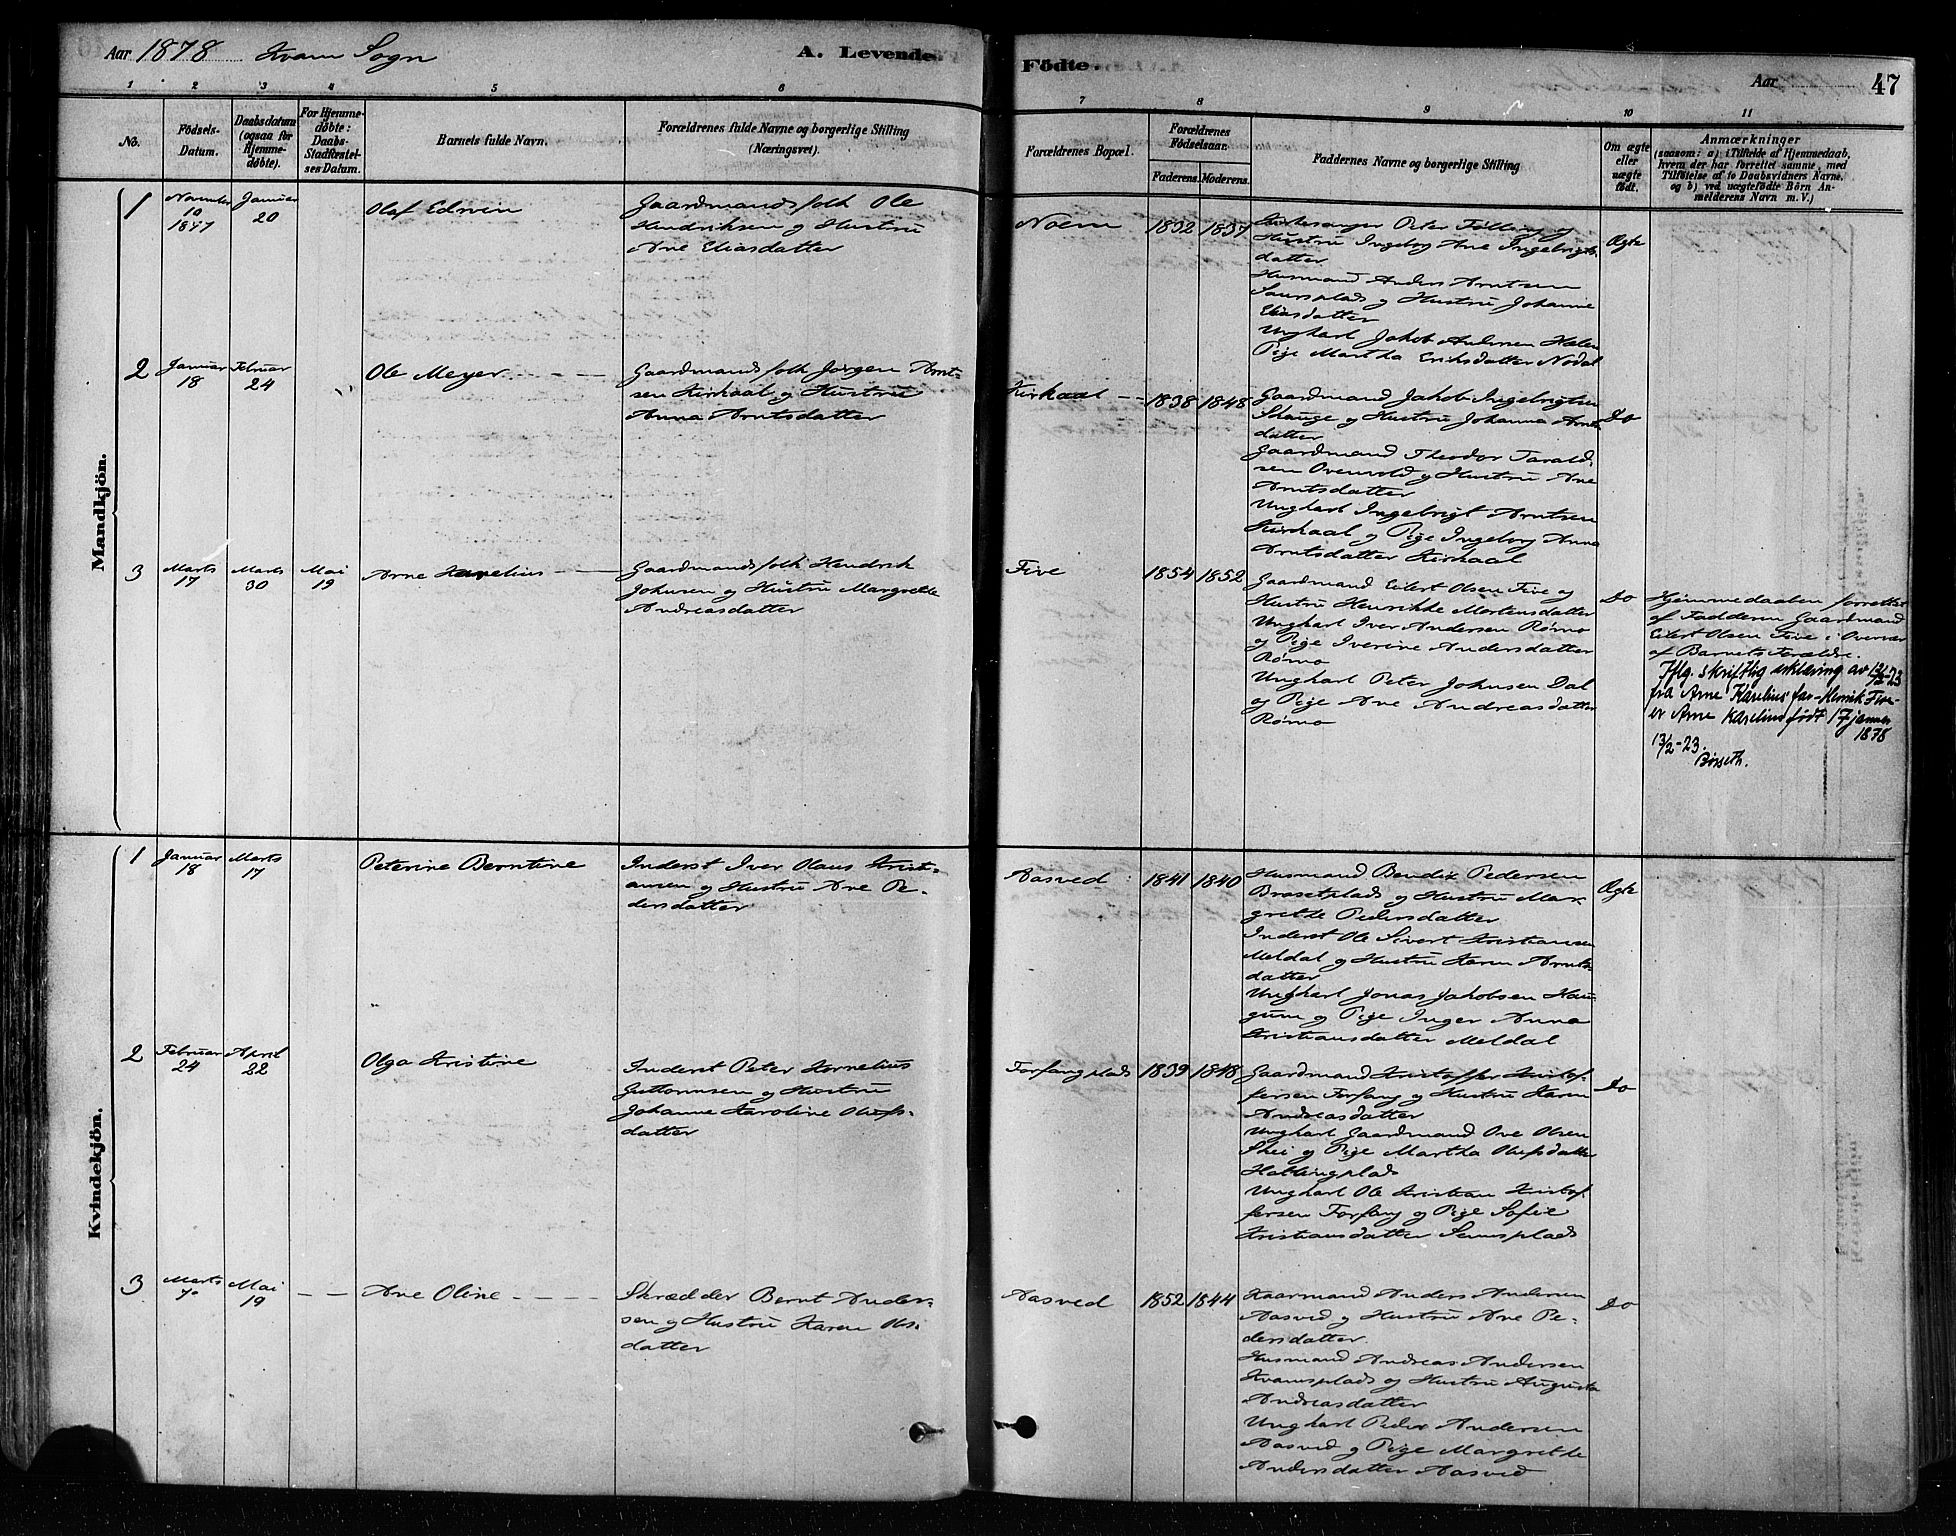 Aar 1878 Kvam Sogn
A. Levende
Födte.
Aar
47
1 2 3 4 5 6 7 8 9 10 11
No.
Födsels-
Datum.
Daabsdatum
(ogsaa för
Hjemme-
døbte).
For Hjemme-
døbte:
Daabs-
Stadfæstel-
ses Datum.
Barnets fulde Navn.
Forældrenes fulde Navne og borgerlige Stilling
(Næringsvei).
Forældrenes Bopæl.
Forældrenes
Födselsaar.
Faderens. Moderens.
Faddernes Navne og borgerlige Stilling
Om ægte
eller
uægte
født.
Anmærkninger
(saasom: a) i Tilfælde af Hjemmedaab,
hvem der har forrettet samme, med
Tilföielse af to Daabsvidners Navne,
og b) ved uægtefödte Börn An-
melderens Navn m. V.)
Mandkjön.
1
November
10
1877
Januar
20
Olaf Edvin
Gaardmandsfolk Ole
Hendriksen og Hustru
Ane Eliasdatter
Noem
1832 1837
Kirkesanger Peter Følling og
Hustru Ingeborg Ane Ingebrigts-
datter
Husmand Anders Arntsen
Saursplads og Hustru Johanne
Eliasdatter
Ungkarl Jakob Andersen Halem
Pige Martha Eriksdatter Nødal
Ægte
2
Januar
18
Februar
24
Ole Meyer
Gaardmandsfolk Jørgen Arnt-
sen Kirkaal og Hustru
Anna Arntsdatter
Kirkaal
1838 1848
Gaardmand Jakob Ingebrigtsen
Skauge og Hustru Johanna Arnts-
datter
Gaardmand Theodor Tarald-
sen Overvold og Hustru Ane
Arntsdatter
Ungkarl Ingebrigt Arntsen
Kirkaal og Pige Ingeborg Anna
Arntsdatter Kirkaal
Do
3
Marts
17
Marts
30
Mai
19
Arne Karelius
Gaardmandsfolk Hendrik
Johnsen og Hustru Margrethe
Andreasdatter
Five
1854 1852
Gaardmand Eilert Olsen Five og
Hustru Henrikke Mortensdatter
Ungkarl Iver Andersen Rømo
og Pige Iverine Andersdatter
Rømo
Ungkarl Peter Johnsen Dal
og Pige Ane Andreasdatter
Rømo
Do
Hjemmedaaben forrettet
af Fadderen Gaardmand
Eilert Olsen Five i Overvær
af Barnets Forældre.
Iflg. skriftlig erklæring av 12/2-23
fra Arne Karelius' far - Henrik Five -
er Arne Karelius født 17 januar
1878
13/2-23.
Børseth.
Kvindekjön.
1
Januar
18
Marts
17
Peterine Berntine
Inderst Iver Olaus Kristi-
ansen og Hustru Ane Pe-
dersdatter
Aasved
1841 1840
Husmand Bendix Pedersen
Brasetplads og Hustru Mar-
grethe Pedersdatter
Inderst Ole Sivert Kristiansen
Meldal og Hustru Karen Arnts-
datter
Ungkarl Jonas Jakobsen Hau-
gum og Pige Inger Anna
Kristiansdatter Meldal
Ægte
2
Februar
24
April
22
Olga Kristine
Inderst Peter Kornelius
Guttormsen og Hustru
Johanne Karoline Olufs-
datter
Forfangplads
1839 1848
Gaardmand Kristoffer Kristof-
fersen Forfang og Hustru Karen
Andreasdatter
Ungkarl Gaardmand Ove Olsen
Skei og Pige Martha Olufsdatter
Hallingplads
Ungkarl Ole Kristian Kristof-
fersen Forfang og Pige Sofie
Kristiansdatter Semsplads
Do
3
Marts
7
Mai
19
Ane Oline
Skrædder Bernt Ander-
sen og Hustru Karen Ols-
datter
Aasved
1852 1844
Kaarmand Anders Andersen
Aasved og Hustru Ane Pe-
dersdatter
Husmand Andreas Andersen
Kvamsplads og Hustru Augusta
Andreasdatter
Ungkarl Peder Andersen
Aasved og Pige Margrethe
Andersdatter Aasved
Do